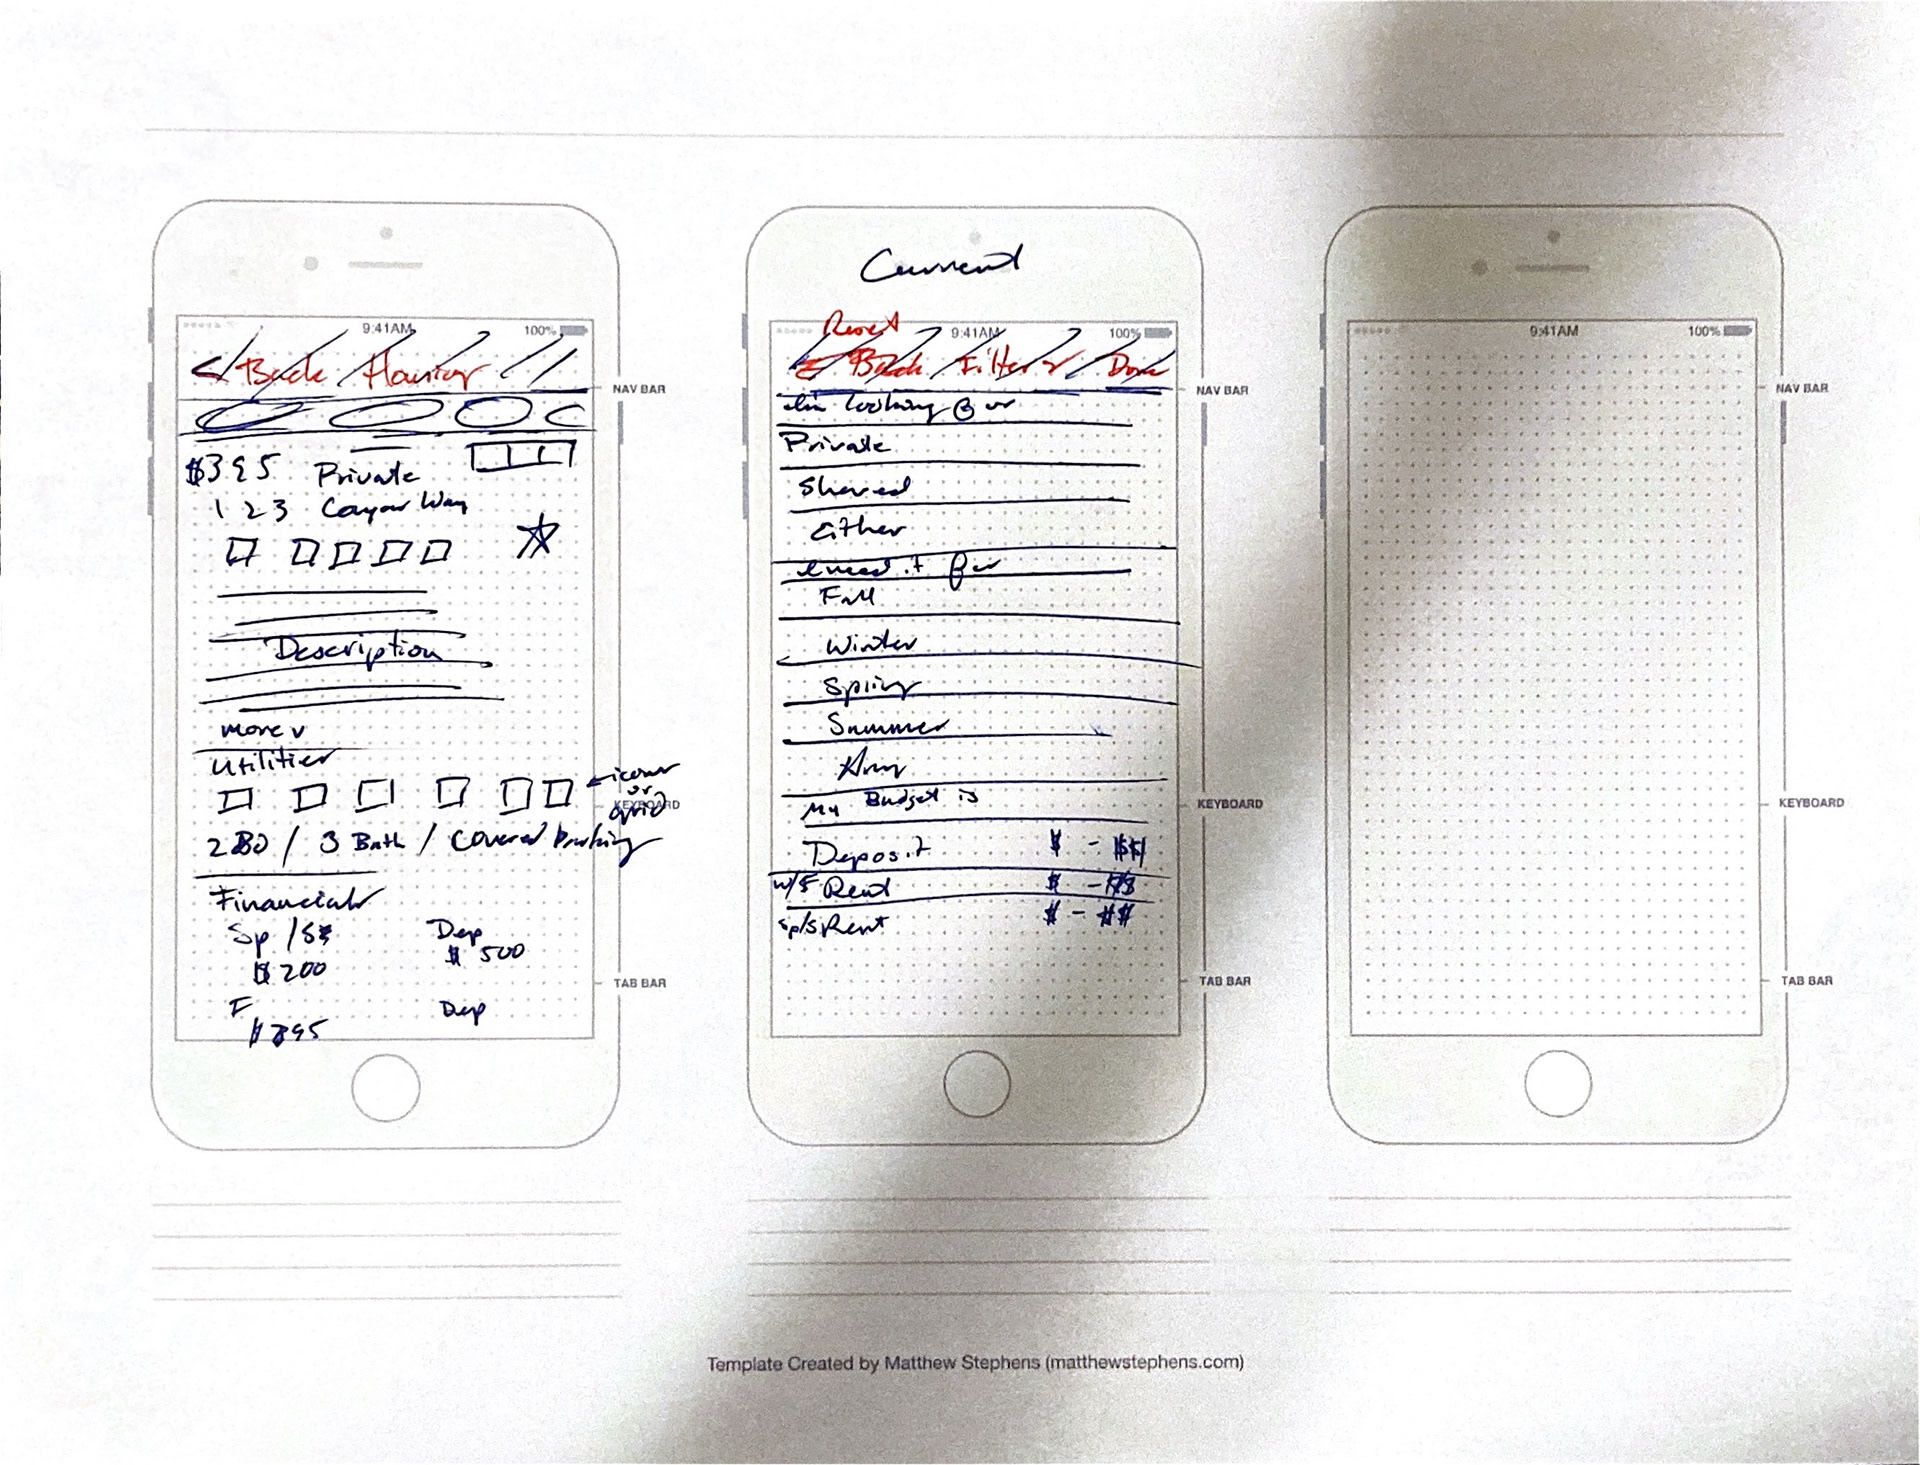 9:41AM 100%
< Back Housing
NAV BAR
$395 Private
123 Conyar Way
Description
more v
Utilities
← icons
or
grid
KEYBOARD
2BD / 3 Bath / Covered Parking
Financials
Sp / S Dep
$200 $500
TAB BAR
F Dep
$395
Current
Reset
9:41AM 100%
Back Filters Done
NAV BAR
I'm looking for
Private
Shared
Either
I need it for
Fall
Winter
Spring
Summer
Any
My Budget is
KEYBOARD
Deposit $ - $$
w/F Rent $ - $$
sp/s Rent $ - $$
TAB BAR
9:41AM 100%
NAV BAR
KEYBOARD
TAB BAR
Template Created by Matthew Stephens (matthewstephens.com)